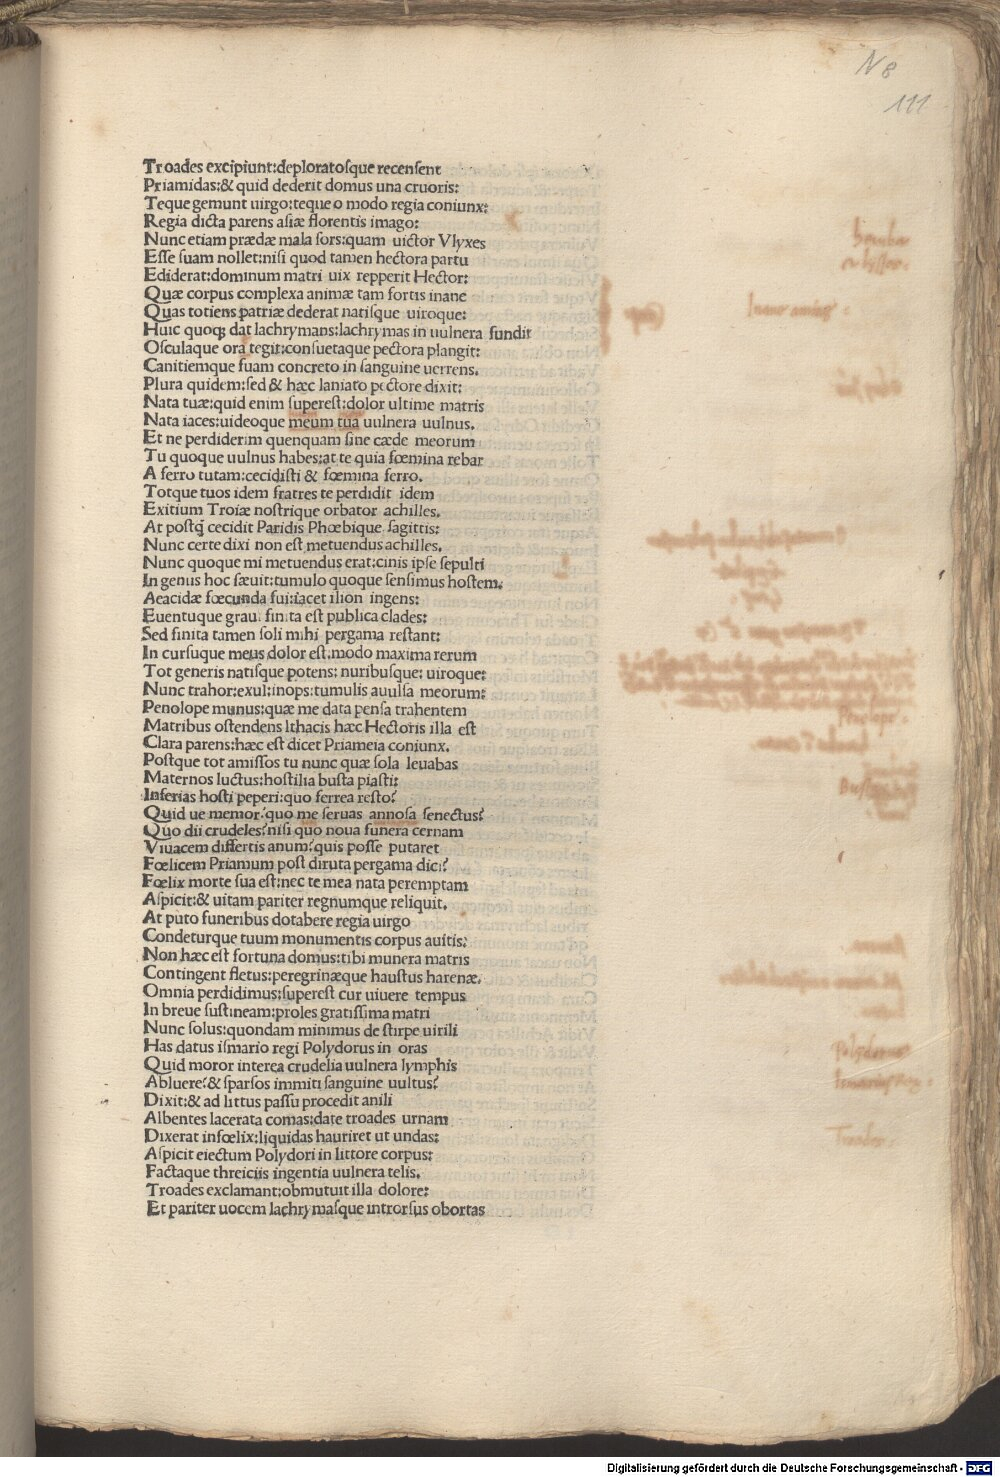 N 8
111
Troades excipiunt:deploratosque recensent
Priamidas:& quid dederit domus una cruoris:
Teque gemunt uirgo:teque o modo regia coniunx:
Regia dicta parens asiæ florentis imago:
Nunc etiam prædæ mala sors:quam uictor Vlyxes
Esse suam nollet:nisi quod tamen hectora partu
Ediderat:dominum matri uix repperit Hector:
Quæ corpus complexa animæ tam fortis inane
Quas totiens patriæ dederat natisque uiroque:
Huic quoqꝫ dat lachrymans:lachrymas in uulnera fundit
Osculaque ora tegit:consuetaque pectora plangit:
Canitiemque suam concreto in sanguine uerrens.
Plura quidem:sed & hæc laniato pectore dixit:
Nata tuæ:quid enim superest:dolor ultime matris
Nata iaces:uideoque meum tua uulnera uulnus.
Et ne perdiderim quenquam sine cæde meorum
Tu quoque uulnus habes:at te quia fœmina rebar
A ferro tutam:cecidisti & fœmina ferro.
Totque tuos idem fratres te perdidit idem
Exitium Troiæ nostrique orbator achilles.
At postq̃ cecidit Paridis Phœbique sagittis:
Nunc certe dixi non est metuendus achilles.
Nunc quoque mi metuendus erat:cinis ipse sepulti
In genus hoc sæuit:tumulo quoque sensimus hostem.
Aeacidæ fœcunda fui:iacet ilion ingens:
Euentuque graui finita est publica clades:
Sed finita tamen soli mihi pergama restant:
In cursuque meus dolor est:modo maxima rerum
Tot generis natisque potens: nuribusque: uiroque:
Nunc trahor:exul:inops:tumulis auulsa meorum:
Penolope munus:quæ me data pensa trahentem
Matribus ostendens Ithacis hæc Hectoris illa est
Clara parens:hæc est dicet Priameia coniunx.
Postque tot amissos tu nunc quæ sola leuabas
Maternos luctus:hostilia busta piasti:
Inferias hosti peperi:quo ferrea resto?
Quid ue memor?quo me seruas annosa senectus?
Quo dii crudeles?nisi quo noua funera cernam
Viuacem differtis anum?quis posse putaret
Fœlicem Priamum post diruta pergama dici?
Fœlix morte sua est:nec te mea nata peremptam
Aspicit:& uitam pariter regnumque reliquit.
At puto funeribus dotabere regia uirgo
Condeturque tuum monumentis corpus auitis:
Non hæc est fortuna domus:tibi munera matris
Contingent fletus:peregrinæque haustus harenæ.
Omnia perdidimus:superest cur uiuere tempus
In breue sustineam:proles gratissima matri
Nunc solus:quondam minimus de stirpe uirili
Has datus ismario regi Polydorus in oras
Quid moror interea crudelia uulnera lymphis
Abluere?& sparsos immiti sanguine uultus?
Dixit:& ad littus passu procedit anili
Albentes lacerata comas:date troades urnam
Dixerat infœlix:liquidas hauriret ut undas:
Aspicit eiectum Polydori in littore corpus:
Factaque threiciis ingentia uulnera telis.
Troades exclamant:obmutuit illa dolore:
Et pariter uocem lachrymasque introrsus obortas
Penelope:
Polydorus
Troades.
Digitalisierung gefördert durch die Deutsche Forschungsgemeinschaft - DFG